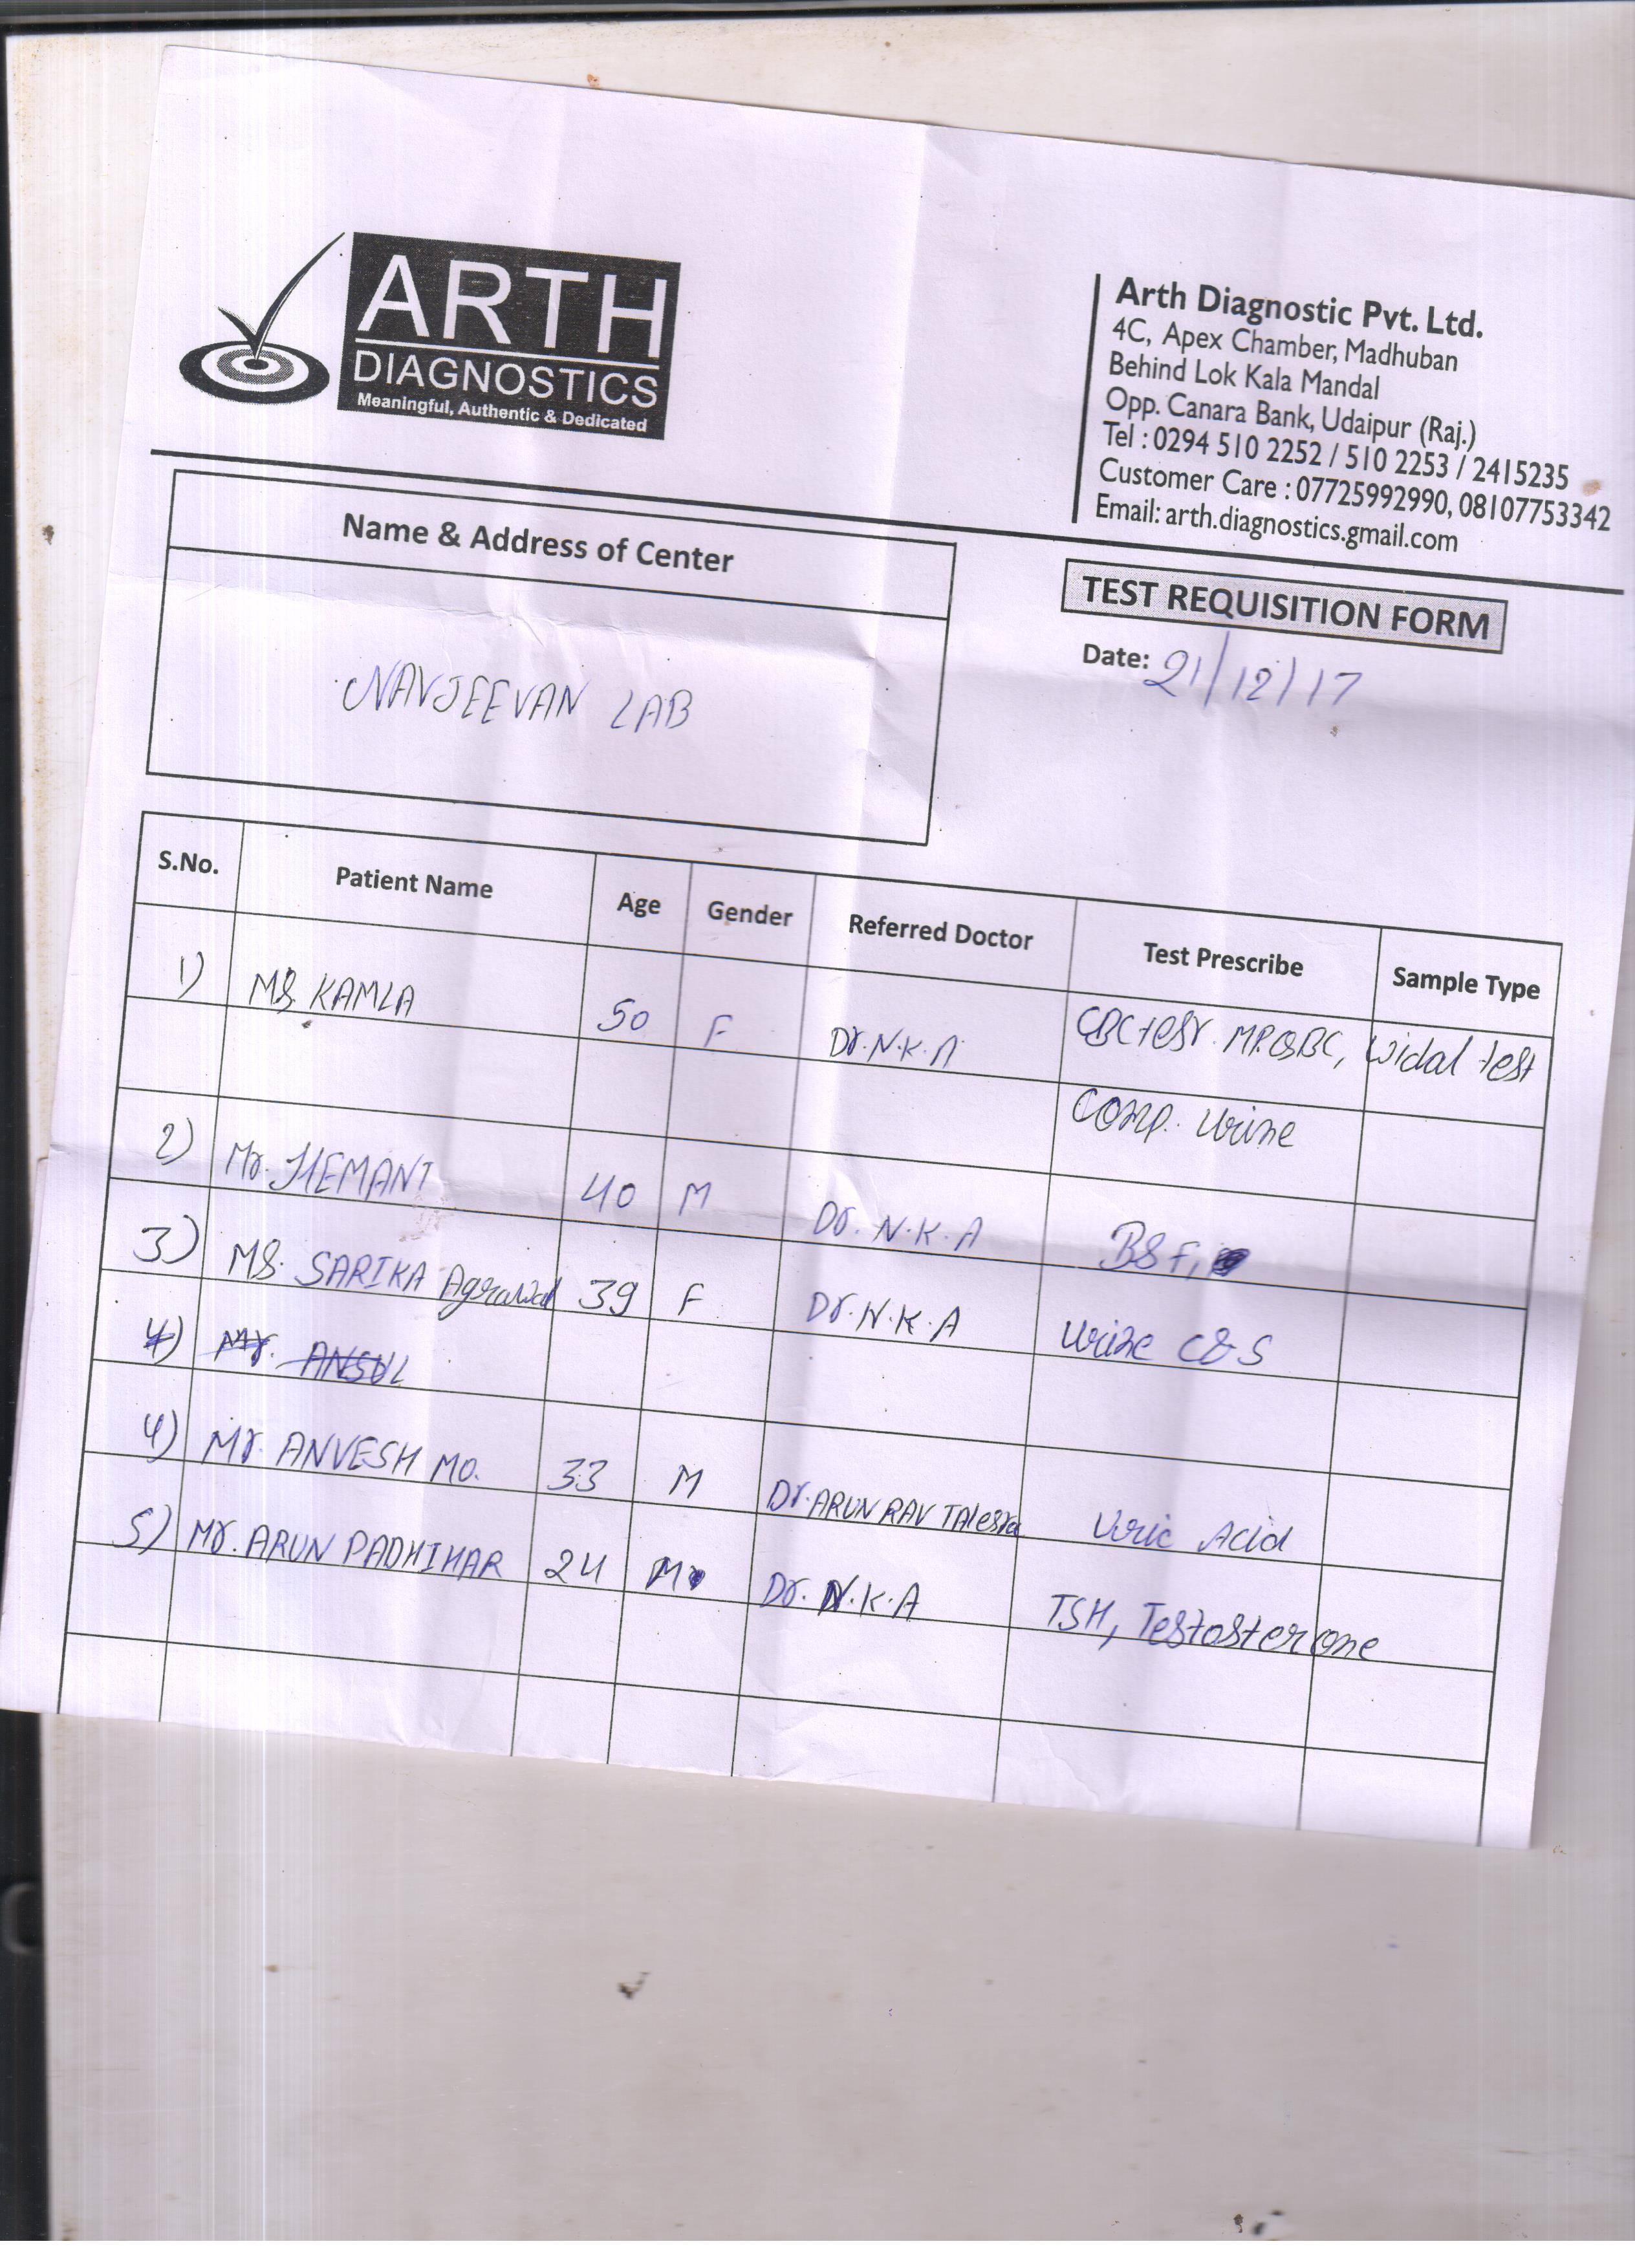 ARTH
DIAGNOSTICS
Meaningful, Authentic & Dedicated
Arth Diagnostic Pvt. Ltd.
4C, Apex Chamber, Madhuban
Behind Lok Kala Mandal
Opp. Canara Bank, Udaipur (Raj.)
Tel : 0294 510 2252 / 510 2253 / 2415235
Customer Care : 07725992990, 08107753342
Email: arth.diagnostics.gmail.com
Name & Address of Center
NAVJEEVAN LAB
TEST REQUISITION FORM
Date: 21/12/17
S.No. Patient Name Age Gender Referred Doctor Test Prescribe Sample Type
1) MS. KAMLA 50 F Dr. N.K.A CBC test. MP.QBC, Widal test
Comp. Urine
2) Mr. HEMANT 40 M Dr. N.K.A BSF,
3) MS. SARIKA Agrawal 39 F Dr. N.K.A Urine C&S
4) Mr. ANSUL
4) Mr. ANVESH MO. 33 M Dr. ARUN RAV TAlesra Uric Acid
5) Mr. ARUN PADHIHAR 24 M Dr. N.K.A TSH, Testosterone